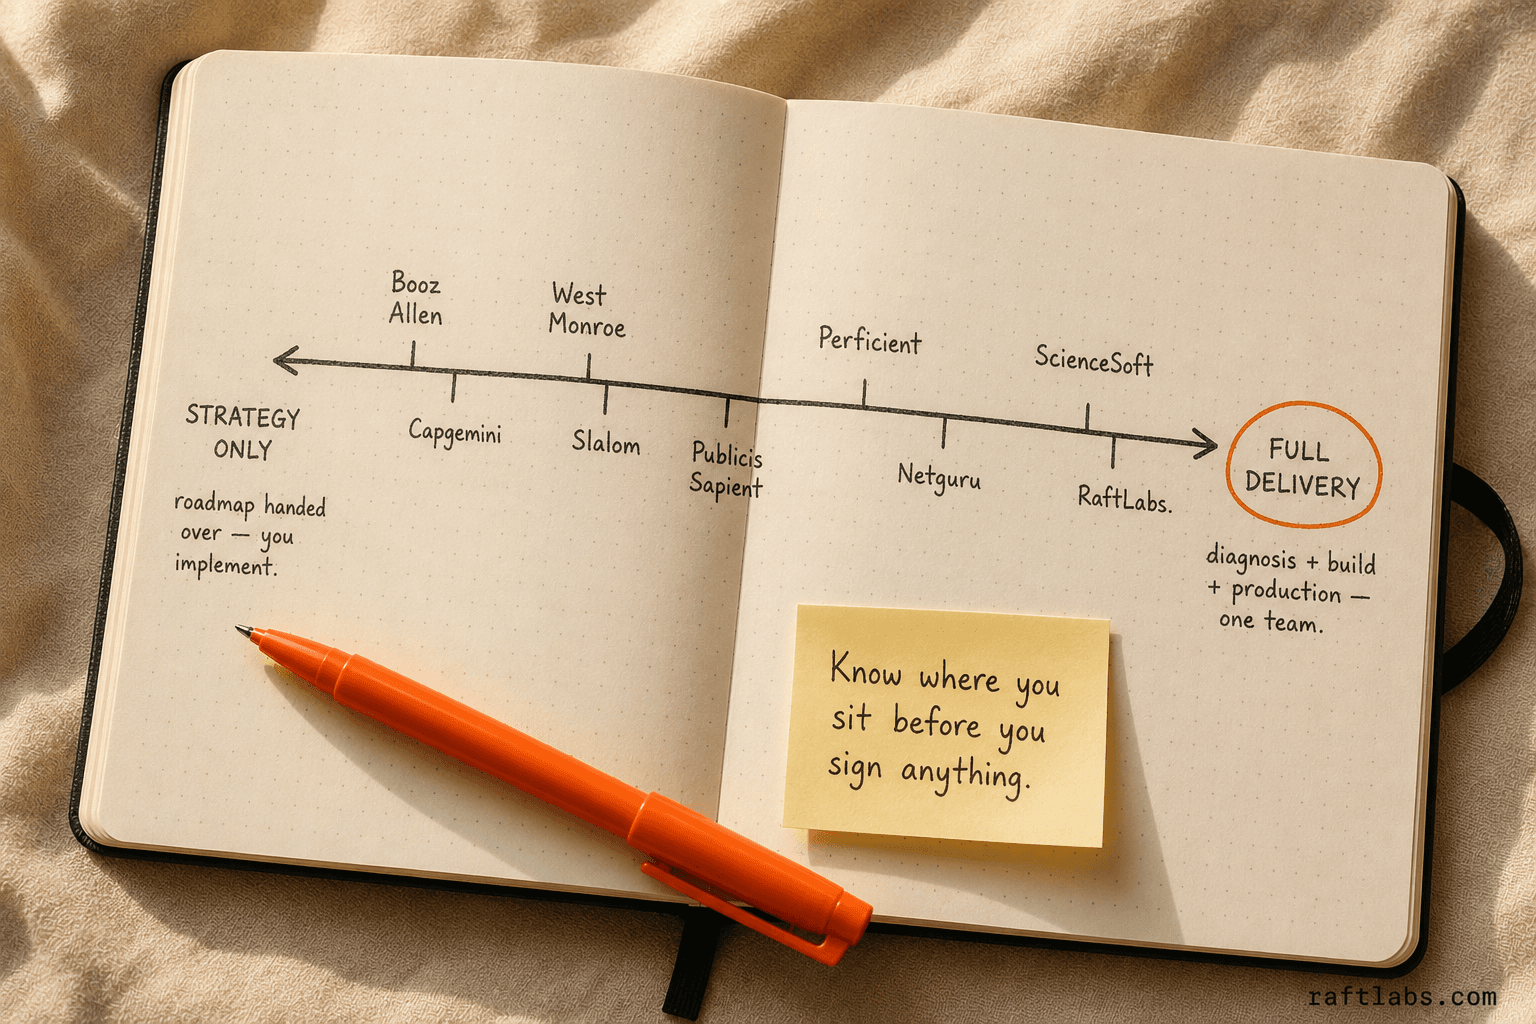 Booz
Allen
West
Monroe
Perficient
ScienceSoft
STRATEGY
ONLY
Capgemini
Slalom
Publicis
Sapient
Netguru
RaftLabs.
FULL
DELIVERY
roadmap handed
over — you
implement.
diagnosis + build
+ production —
one team.
Know where you
sit before you
sign anything.
raftlabs.com